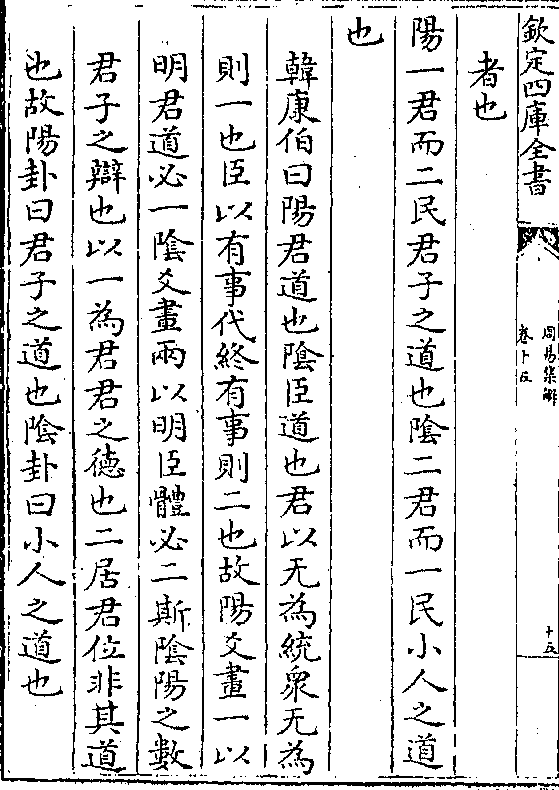 欽定四庫全書
周易集解
卷十五
十五
者也
陽一君而二民君子之道也陰二君而一民小人之道
也
韓康伯曰陽君道也陰臣道也君以无為統衆无為
則一也臣以有事代終有事則二也故陽爻畫一以
明君道必一陰爻畫兩以明臣體必二斯陰陽之數
君子之辯也以一為君君之德也二居君位非其道
也故陽卦曰君子之道也陰卦曰小人之道也